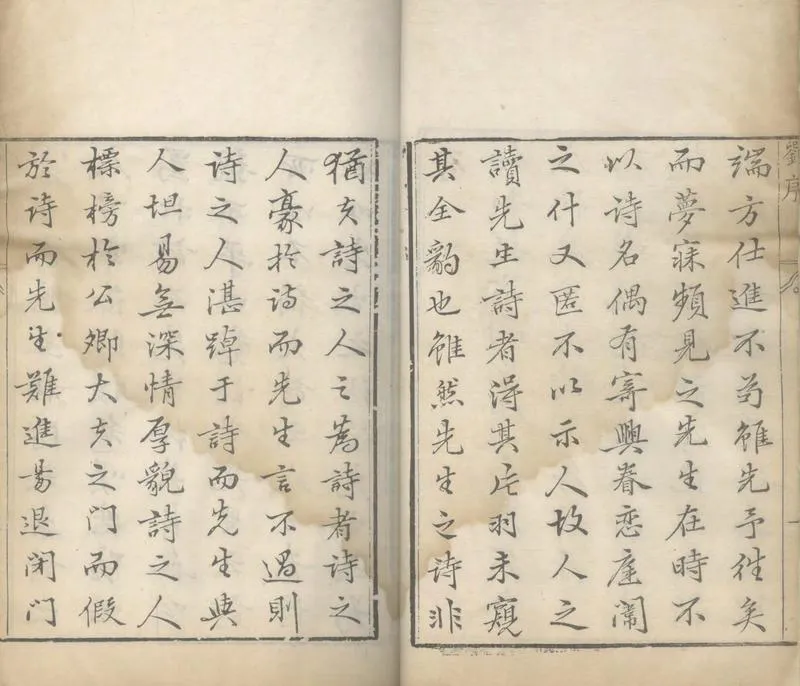 劉序
端方仕進不苟雖先予徃矣
而夢寐頻見之先生在時不
以詩名偶有寄興眷戀庭闈
之什又匿不以示人故人之
讀先生詩者得其片羽未窺
其全豹也雖然先生之詩非
猶夫詩之人之為詩者詩之
人豪於詩而先生言不過則
詩之人湛踔于詩而先生與
人坦易無深情厚貌詩之人
標榜於公卿大夫之門而假
於詩而先生難進易退閉門
一